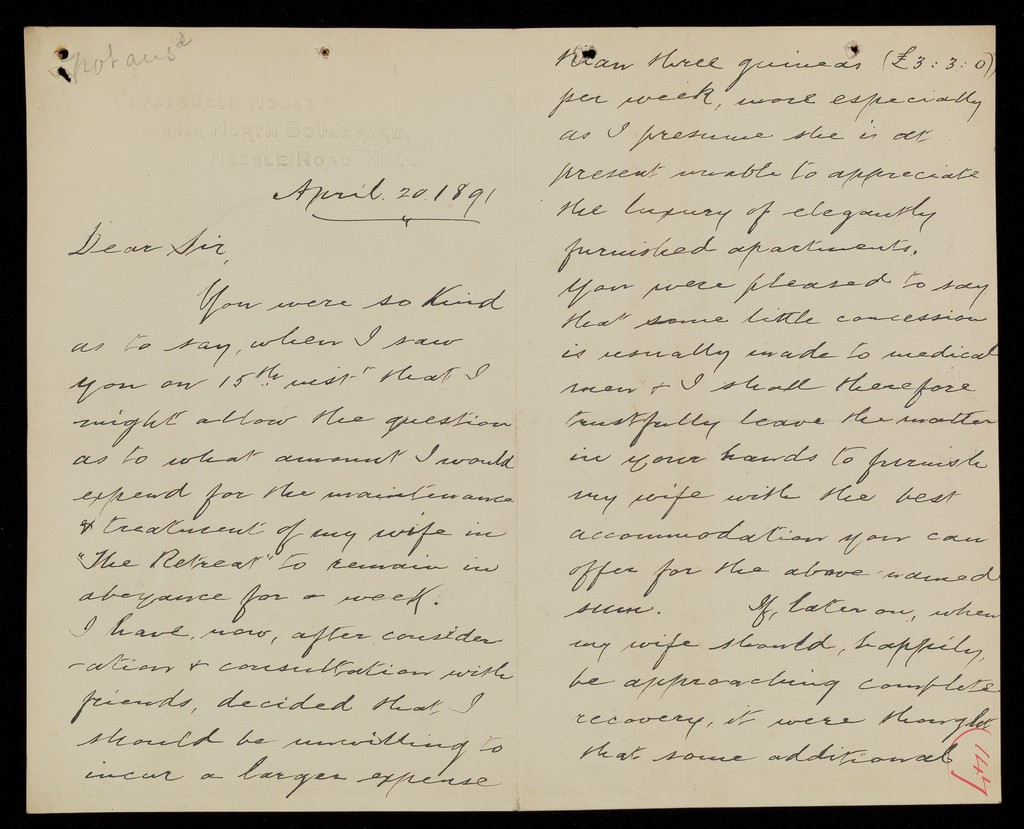 not ansd
CLYDESDALE HOUSE,
CORNER NORTH BOULEVARD,
HESSLE ROAD, HULL.
April. 20. 1891
Dear Sir,
You were so kind
as to say, when I saw
you on 15th inst that I
might allow the question
as to what amount I would
expend for the maintenance
& treatment of my wife in
"The Retreat" to remain in
abeyance for a week.
I have, now, after consider
-ation & consultation with
friends, decided that I
should be unwilling to
incur a larger expense
than three guineas (£3:3:0)
per week, more especially
as I presume she is at
present unable to appreciate
the luxury of elegantly
furnished apartments.
You were pleased to say
that some little concession
is usually made to medical
men & I shall therefore
trustfully leave the matter
in your hands to furnish
my wife with the best
accommodation you can
offer for the above-named
sum. If, later on, when
my wife should, happily,
be approaching complete
recovery, it were thought
that some additional